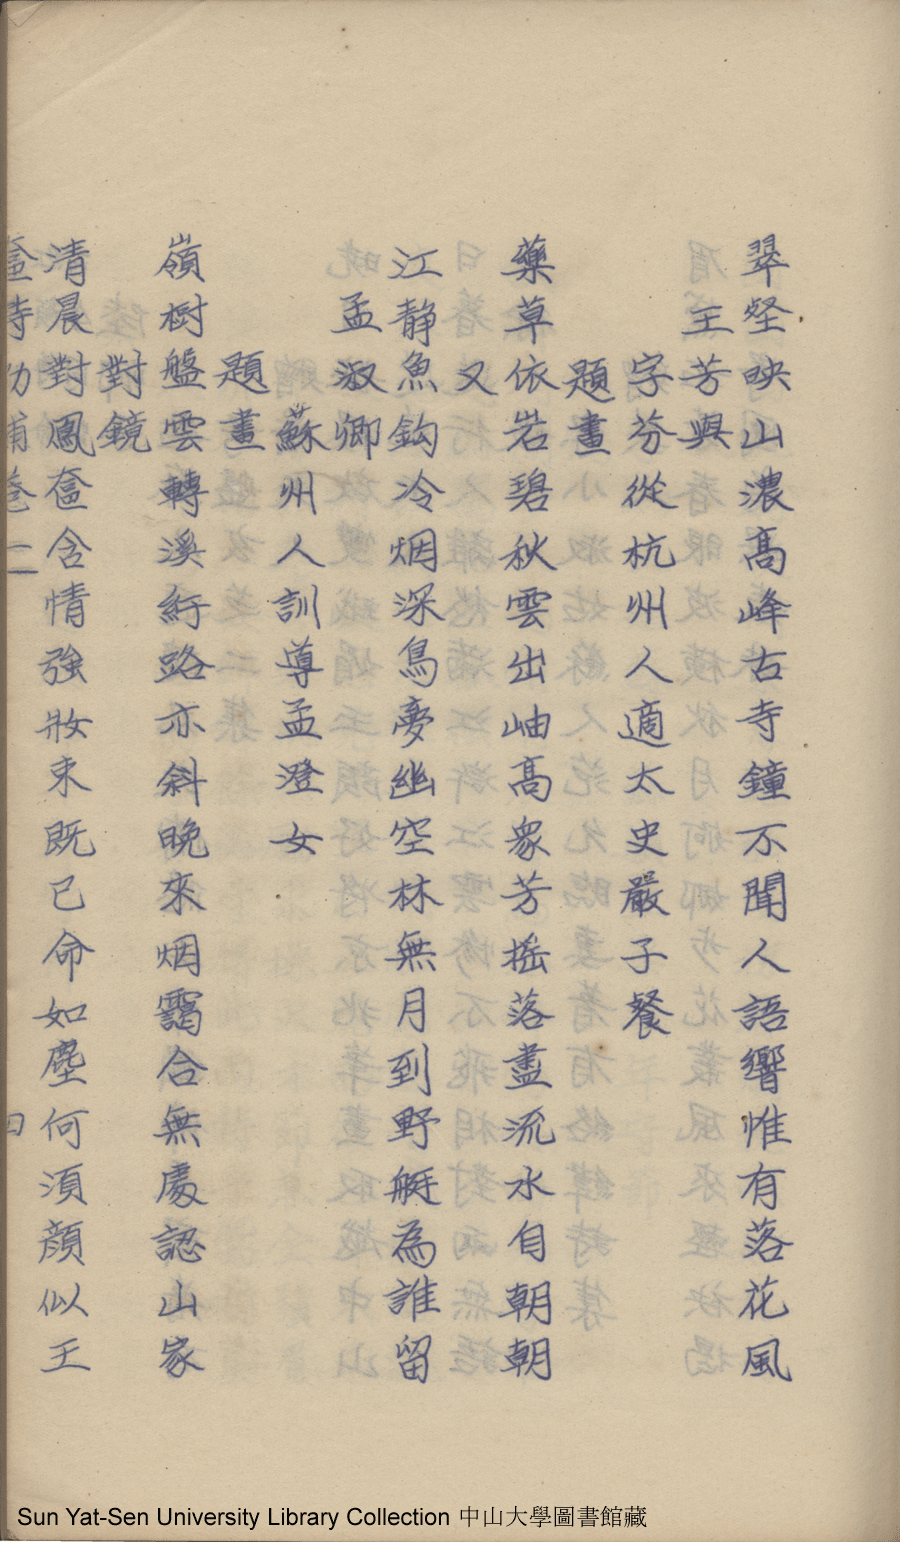 翠壑映山濃高峰古寺鐘不聞人語響惟有落花風
王芳與
字芬從杭州人適太史嚴子餐
題畫
藥草依岩碧秋雲出岫高衆芳搖落盡流水自朝朝
又
江静魚鈎冷烟深鳥夢幽空林無月到野艇為誰留
孟淑卿
蘇州人訓導孟澄女
題畫
嶺樹盤雲轉溪紆路亦斜晚來烟靄合無處認山家
對鏡
清晨對鳳奩含情強妝束既已命如塵何須顔似玉
奩詩 補卷二 四
Sun Yat-Sen University Library Collection 中山大學圖書館藏